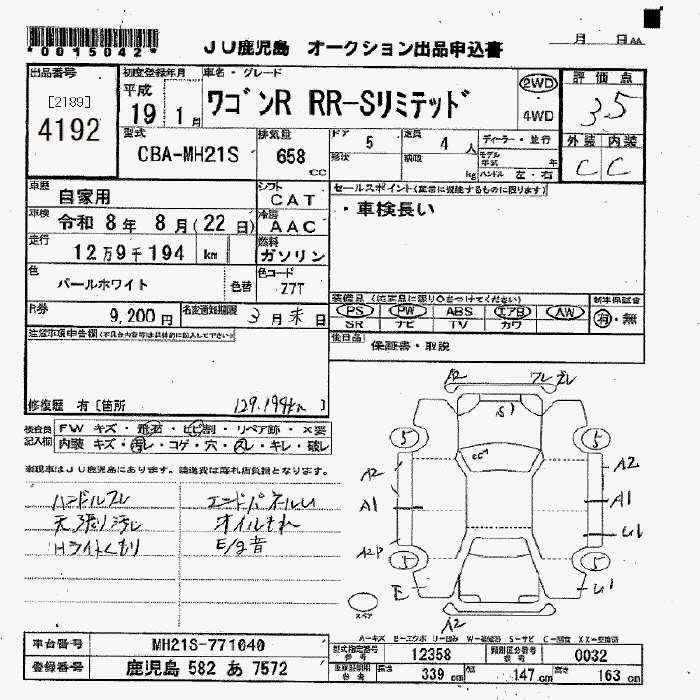 *0015042*
JU鹿児島 オークション出品申込書
月 日 AA
出品番号
[2189]
4192
初度登録年月
平成
19 1月
車名・グレード
ワゴンR RR-Sリミテッド
2WD
4WD
評価点
3.5
外装 内装
C C
型式
CBA-MH21S
排気量
658 cc
ドア 5
形状
定員 4 人
積載 kg
ディーラー・並行
モデル年式 年
ハンドル 左・右
車歴
自家用
シフト
CAT
セールスポイント
・車検長い
車検
令和 8年 8月(22日)
冷房
AAC
走行
12万9千194 km
燃料
ガソリン
色
パールホワイト
色替
色コード
Z7T
R券
9,200円
名変通知期限
3月末日
PS PW ABS エアB AW
SR ナビ TV カワ
新車保証書
有・無
後日品
保証書・取説
注意事項申告欄
修復歴 有〔箇所 129,194km 〕
検査員記入欄
FW キズ・飛石・ヒビ割・リペア跡・×要
内装 キズ・汚レ・コゲ・穴・スレ・キレ・破レ
現車はJU鹿児島にあります。陸送費は落札店負担となります。
ハンドルスレ
天張り汚レ
Hライトくもり
エンドパネルU
オイルもれ
E/g音
A2
ワレ ズレ
S1
5
5
A2
A1
A2P
E
A2
A1
U1
U1
5
5
A2
スペア
A=キズ E=エクボ U=凹み W=補修跡 S=サビ C=腐食 XX=交換済
車台番号 MH21S-771040
登録番号 鹿児島 582 あ 7572
型式指定番号 参考 12358
類別区分番号 参考 0032
長さ 339 cm
幅 147 cm
高さ 163 cm